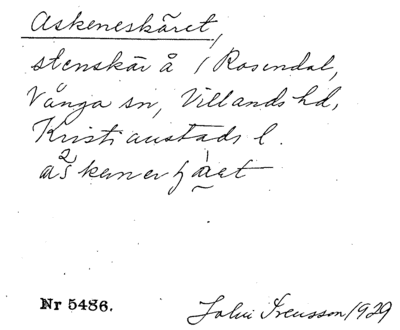 Askeneskäret,
stenskär å / Rosendal,
Vånga sn, Villands hd,
Kristianstads l.
Nr 5486.
John Svensson 1929